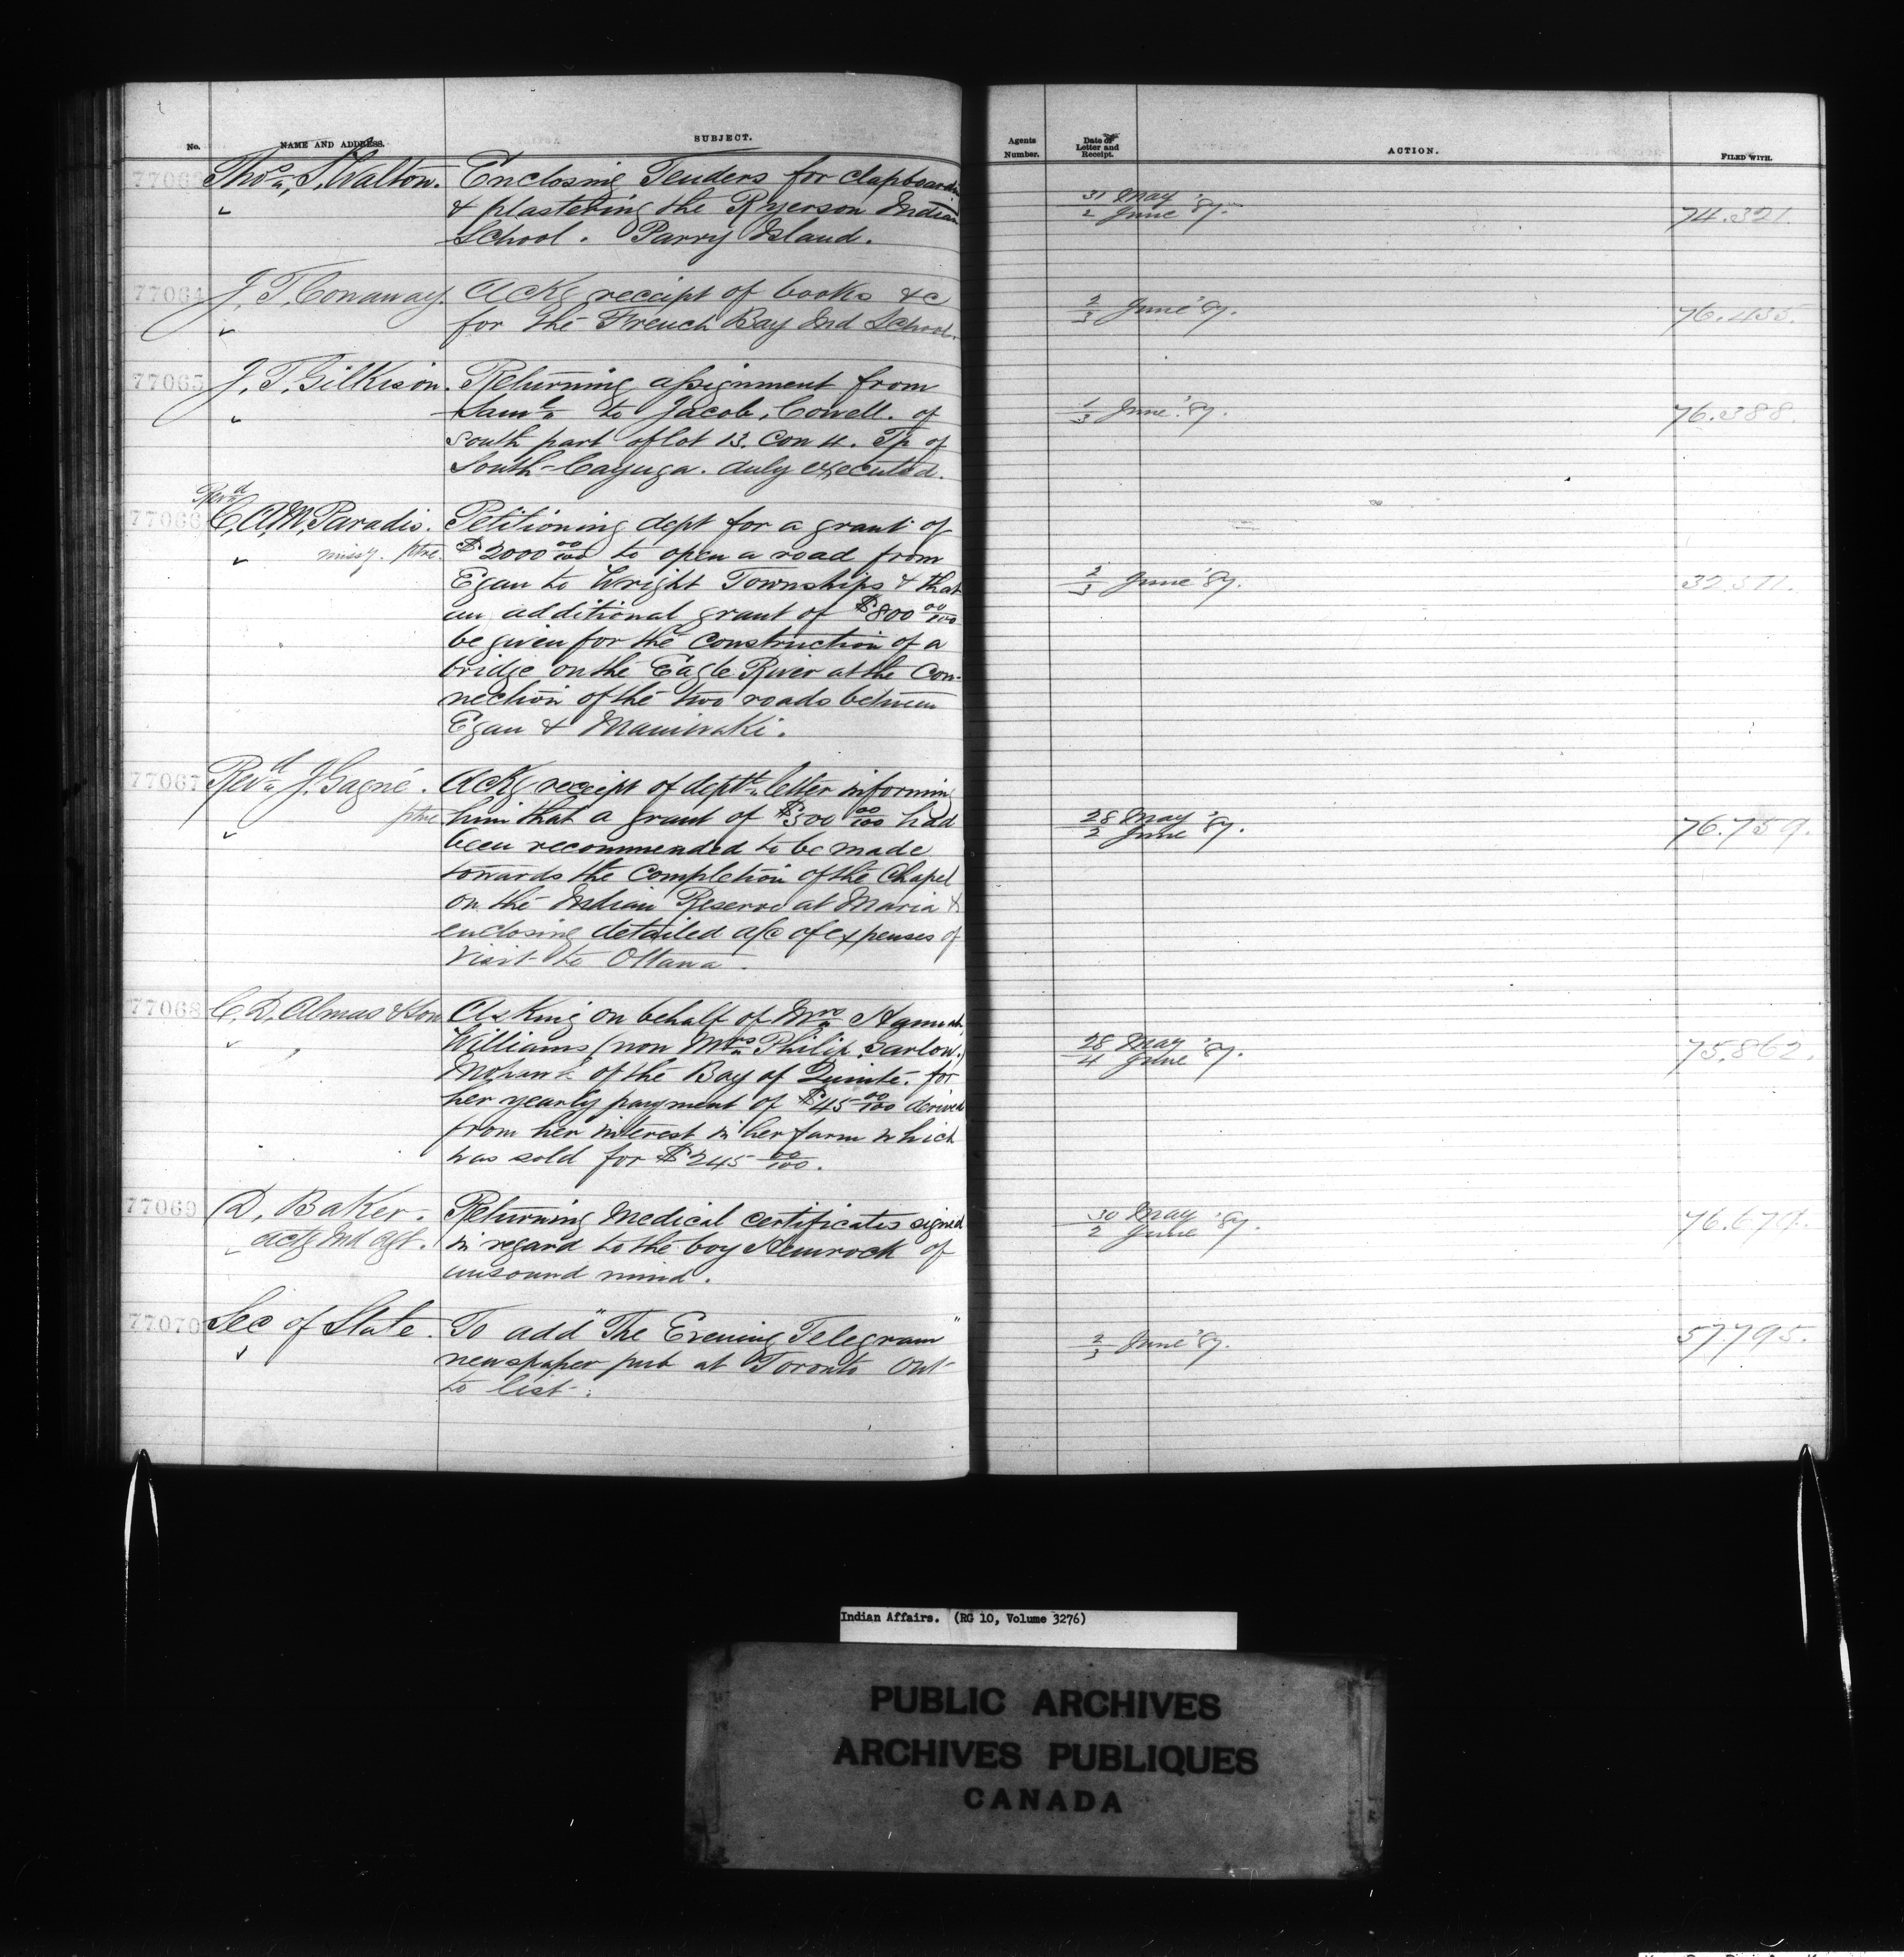 No. NAME AND ADDRESS. SUBJECT. Agents Number. Date of Letter and Receipt. ACTION. FILED WITH.
77063 Thos. S. Walton. Enclosing Tenders for clapboarding
& plastering the Ryerson Indian 31 May / 2 June '87. 74.321.
School. Parry Island.
77064 J. T. Conaway. Ackg receipt of books &c 2/3 June '87. 76.435.
for the French Bay Ind School.
77065 J. T. Gilkison. Returning assignment from
Saml. to Jacob, Cowell. of 1/3 June '87. 76.388.
south part of lot 13. Con 4. Tp of
South-Cayuga. duly executed.
Revd
77066 C. A. M. Paradis. Petitioning dept for a grant of
missy. ptre. $2000 00/100 to open a road from
Egan to Wright Townships & that 2/3 June '87.
an additional grant of $800 00/100
be given for the construction of a
bridge on the Eagle River at the con-
nection of the two roads between
Egan & Maniwaki.
77067 Revd. J. Gagné. Ackg receipt of deptl. letter informing
ptre him that a grant of $300 00/100 had 28 May / 2 June '87. 76.759.
been recommended to be made
towards the completion of the Chapel
on the Indian Reserve at Maria &
enclosing detailed a/c of expenses of
visit to Ottawa.
77068 C. D. Almas & Son Asking on behalf of Mrs. Hannah
Williams (now Mrs. Philip Garlow.) 28 May / 4 June '87. 75.862.
Mohawk of the Bay of Quinté. for
her yearly payment of $45 00/100 derived
from her interest in her farm which
was sold for $245 00/100.
77069 D. Baker. Returning Medical certificates signed 30 May / 2 June '87.
actg Ind Agt. in regard to the boy Hemrock of
unsound mind.
77070 Sec of State. To add "The Evening Telegram" 2/3 June '87. 57.795.
newspaper pub at Toronto Ont
to list.
Indian Affairs. (RG 10, Volume 3276)
PUBLIC ARCHIVES
ARCHIVES PUBLIQUES
CANADA